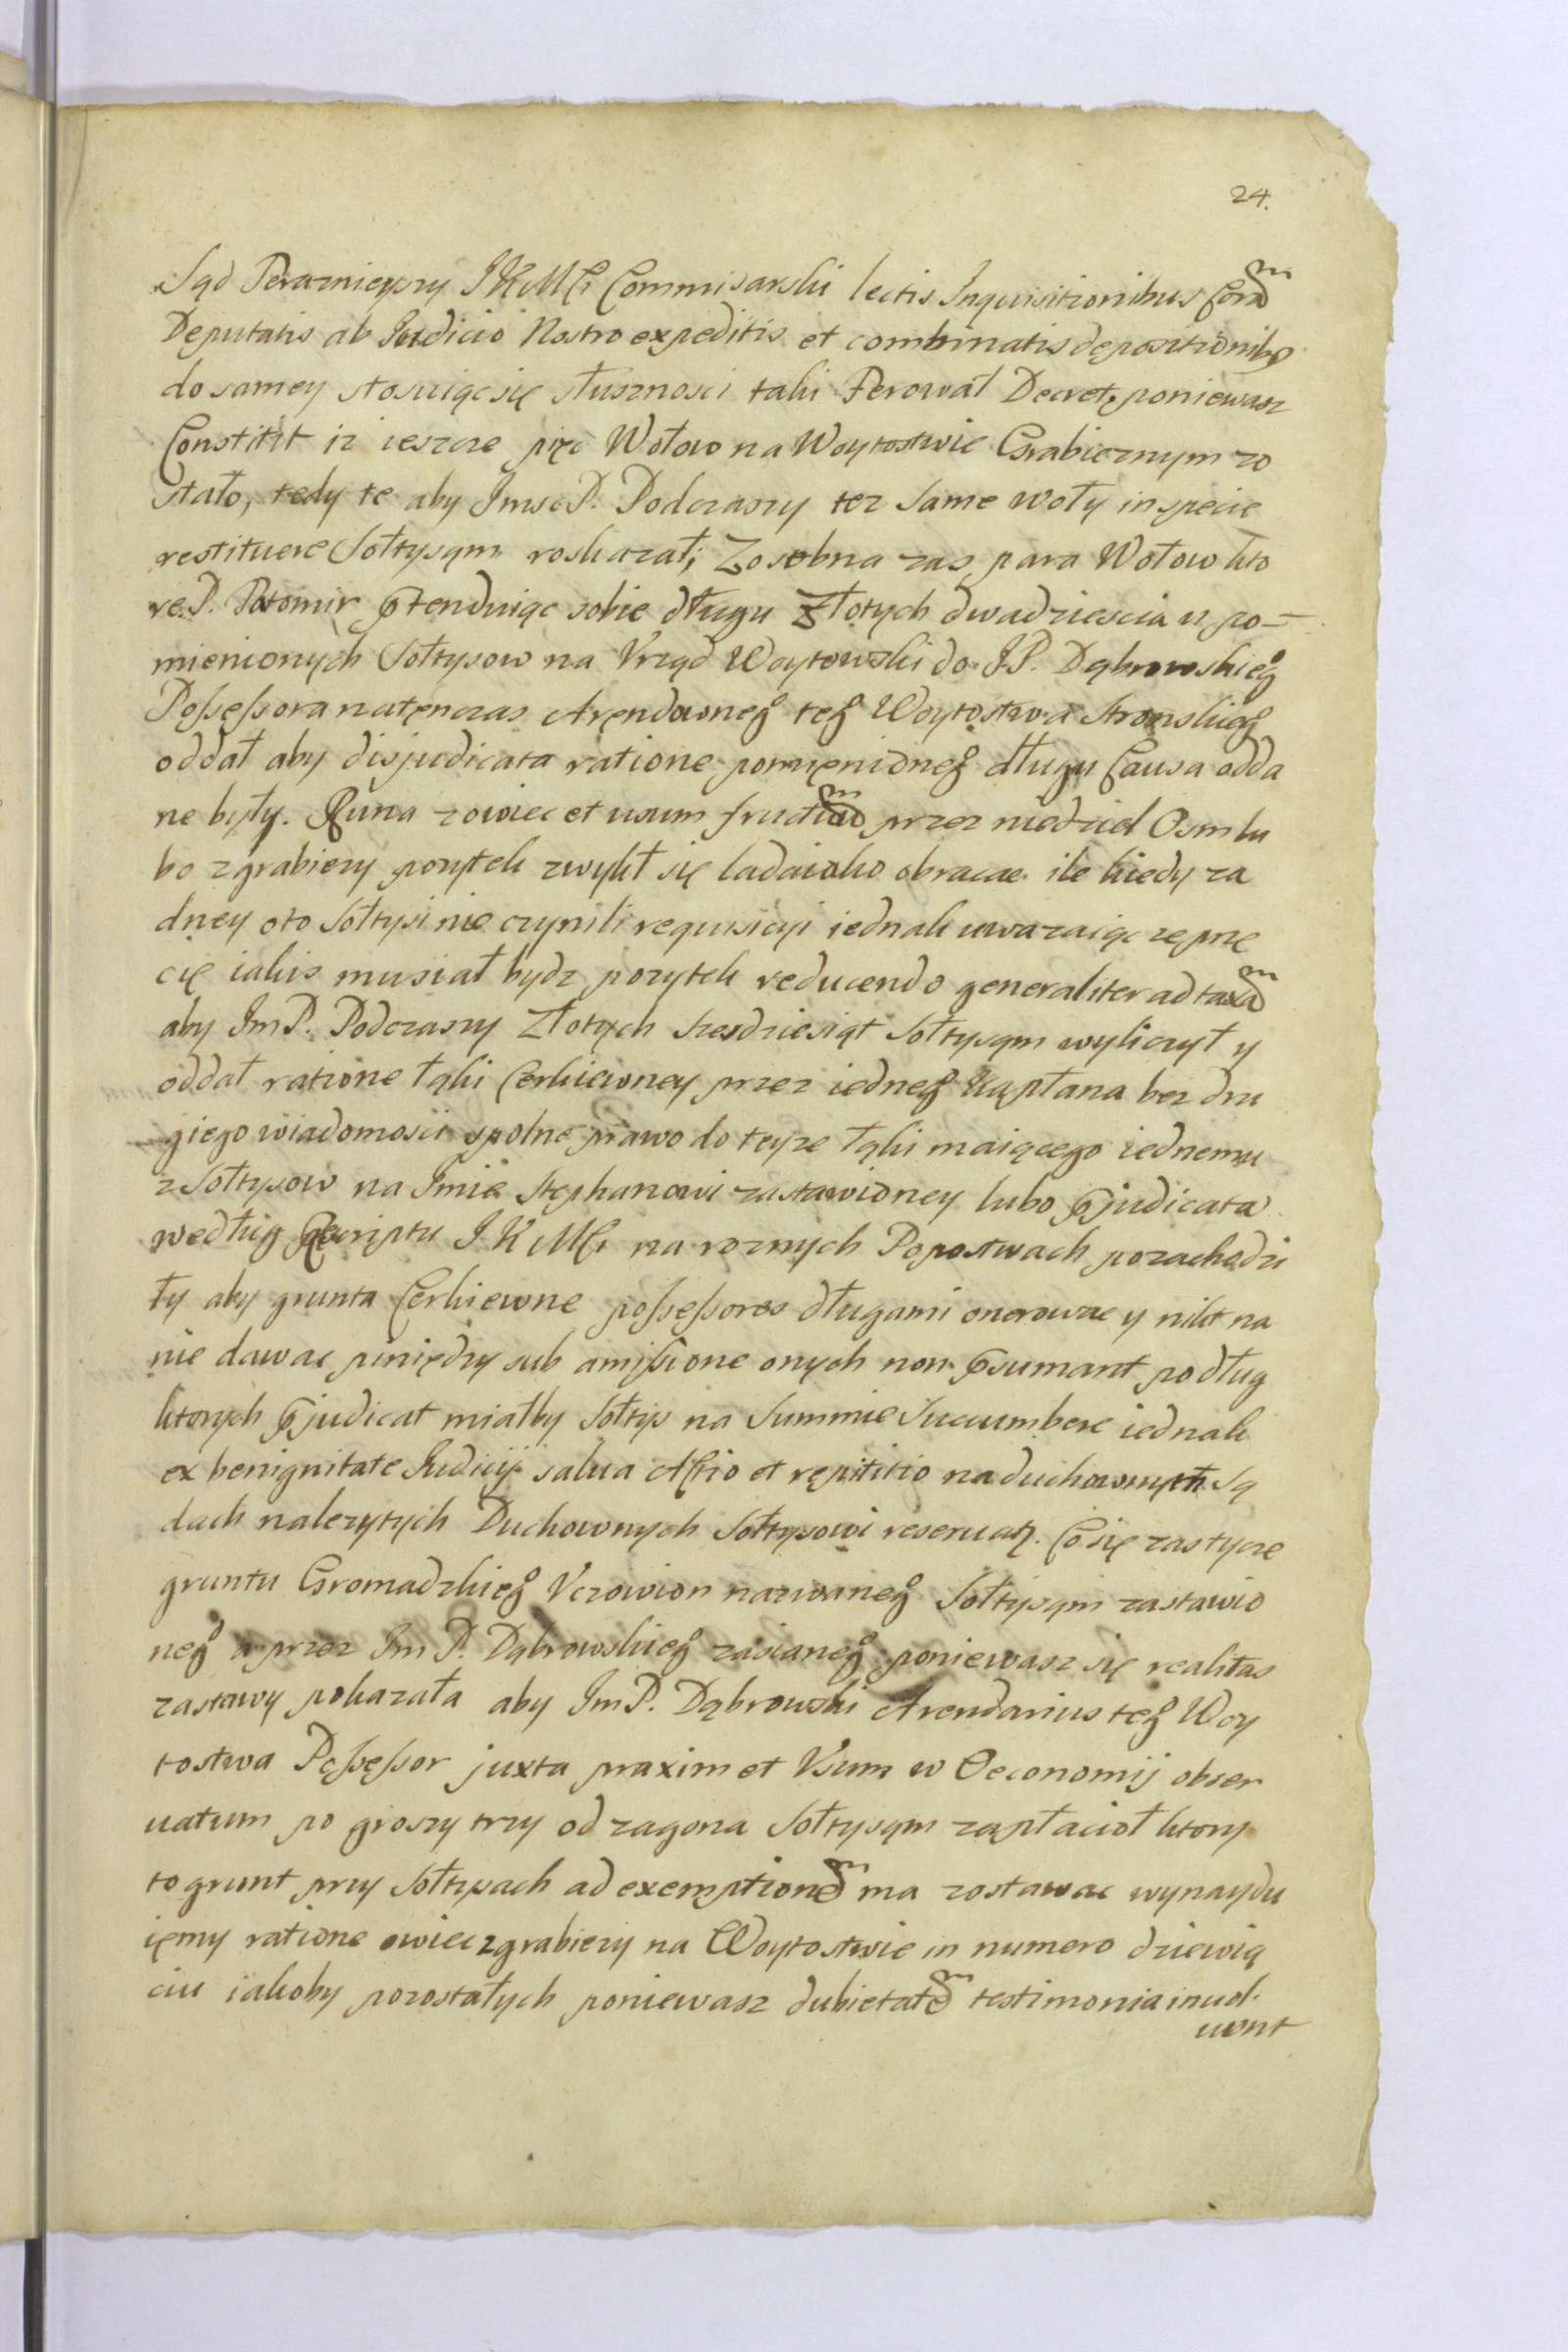 24.
Sąd Perazniejszy JKMCi Commisarski lectis Inquisitionibus Coram
Deputatis ab Iudicio Nostro expeditis et combinatis depositionibus
do samey stosuiąc się słusznosci taki Ferował Decret, poniewasz
Constitit iz ieszcze pięć Wołow na Woytostwie Grabieznym zo
stało, tedy te aby Imsc P. Podczaszy tez same woły in specie
restituere Sołtysąm roskazał; Zosobna zas para Wołow kto
re P. Potomir prętenduiąc sobie długu Złotych dwadziescia u po-
mienionych Sołtysow na Vrząd Woytowski do JP. Dąbrowskieg
Poßeßora natęnczas Aręndowneg teg Woytostwa Stronskieg
oddał aby disjudicata ratione pomięnioneg długu Causa odda
ne były. Runa z owiec et usum fructum przez niedziel Osm lu
bo z grabiezy pozytek zwykł się ladaiako obracac ile kiedy za
dney oto Sołtysi nie czynili requisicyi iednak uwazaiąc ze prze
cię iakis musiał bydz pozytek reducendo generaliter ad taxam
aby Im P. Podczaszy Złotych szesdziesiąt Sołtysąm wyliczył y
oddał ratione łąki Cerkiewney przez iedneg Kapłana bez dru
giego wiadomosci spolne prawo do teyze łąki maiącego iednemu
z Sołtysow na Imie Stephanowi zastawioney lubo præjudicata
według Rescriptu JKMCi na roznych Popostwach pozachodzi
ły aby grunta Cerkiewne poßeßores długami onerowac y nikt na
nie dawac piniędzy sub amißione onych non præsumant podług
ktorych præjudicat miałby Sołtys na Summie Succumbere iednak
ex benignitate Iudicij salva Actio et repititio na duchownych Są
dach nalezytych Duchownych Sołtysowi reservatr. Co się zas tycze
gruntu Gromadzkieg Vczowion nazwaneg Sołtysąm zastawio
neg a przez Im P. Dąbrowskieg zasianeg poniewasz się realitas
zastawy pokazała aby Im P. Dąbrowski Arendarius teg Woy
tostwa Poßeßor juxta praxim et Vsum w Oeconomij obser
uatum po groszy trzy od zagona Sołtysąm zapłacioł ktory
to grunt przy Sołtysach ad exemptionem ma zostawac wynaydu
ięmy ratione owiec zgrabiezy na Woytostwie in numero dziewią
ciu iakoby pozostałych poniewasz dubietatem testimonia inuol.
uunt